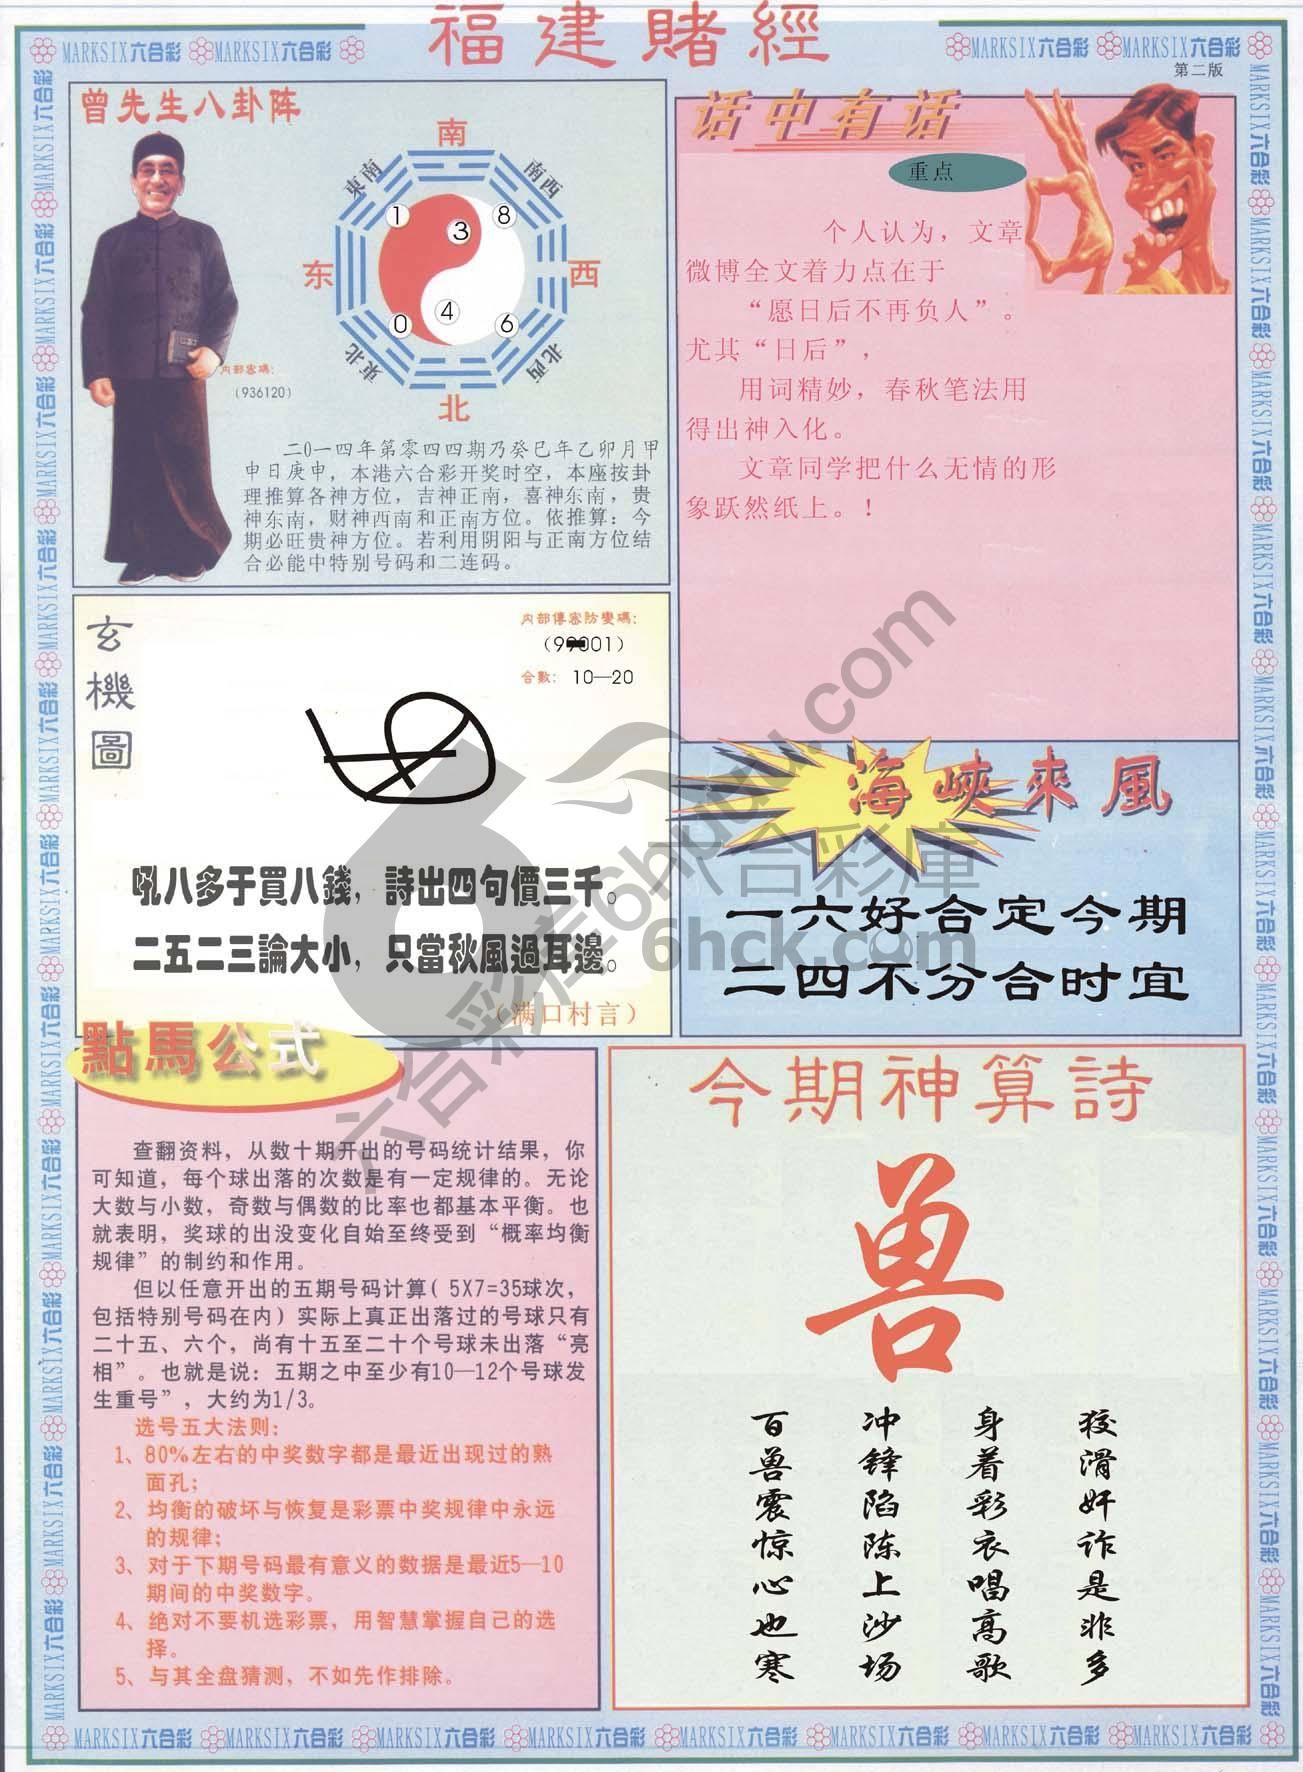 福建賭經
MARKSIX六合彩 MARKSIX六合彩
MARKSIX六合彩 MARKSIX六合彩
第二版
曾先生八卦阵
南
東南
南西
1
8
3
东
西
4
0
6
東北
北西
北
内部密碼:
(936120)
二0一四年第零四四期乃癸巳年乙卯月甲
申日庚申，本港六合彩开奖时空，本座按卦
理推算各神方位，吉神正南，喜神东南，贵
神东南，财神西南和正南方位。依推算：今
期必旺贵神方位。若利用阴阳与正南方位结
合必能中特别号码和二连码。
话中有话
重点
个人认为，文章
微博全文着力点在于
“愿日后不再负人”。
尤其“日后”，
用词精妙，春秋笔法用
得出神入化。
文章同学把什么无情的形
象跃然纸上。!
玄機圖
内部傳密防變碼:
合數: 10—20
吼八多于買八錢，詩出四句價三千。
二五二三論大小，只當秋風過耳邊。
（满口村言）
海峽來風
一六好合定今期
二四不分合时宜
六合彩庫
6hck.com
六合彩库6hpudu.com
點馬公式
查翻资料，从数十期开出的号码统计结果，你
可知道，每个球出落的次数是有一定规律的。无论
大数与小数，奇数与偶数的比率也都基本平衡。也
就表明，奖球的出没变化自始至终受到“概率均衡
规律”的制约和作用。
但以任意开出的五期号码计算( 5X7=35球次，
包括特别号码在内）实际上真正出落过的号球只有
二十五、六个，尚有十五至二十个号球未出落“亮
相”。也就是说：五期之中至少有10—12个号球发
生重号”，大约为1/3。
选号五大法则:
1、80%左右的中奖数字都是最近出现过的熟
面孔;
2、均衡的破坏与恢复是彩票中奖规律中永远
的规律;
3、对于下期号码最有意义的数据是最近5—10
期间的中奖数字。
4、绝对不要机选彩票，用智慧掌握自己的选
择。
5、与其全盘猜测，不如先作排除。
今期神算詩
兽
狡滑奸诈是非多
身着彩衣唱高歌
冲锋陷陈上沙场
百兽震惊心也寒
MARKSIX六合彩 MARKSIX六合彩 MARKSIX六合彩 MARKSIX六合彩 MARKSIX六合彩 MARKSIX六合彩 MARKSIX六合彩 MARKSIX六合彩